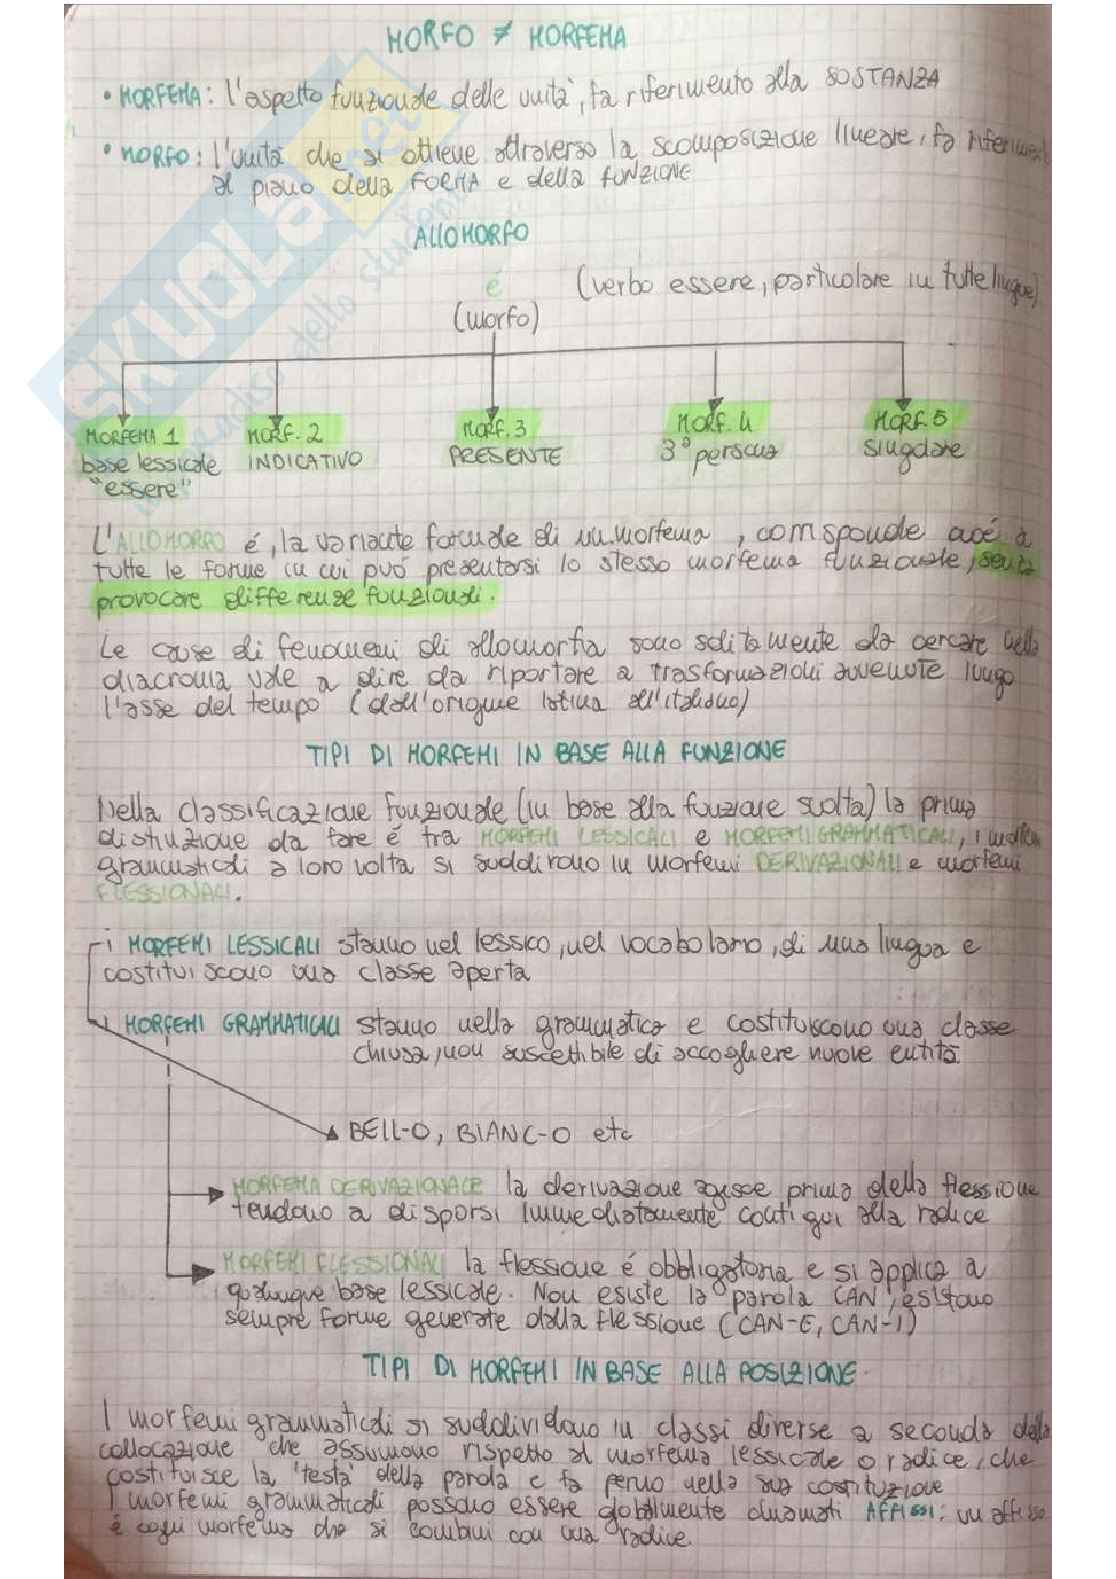 MORFO ≠ MORFEMA
• MORFEMA: l'aspetto funzionale delle unità, fa riferimento alla SOSTANZA
• MORFO: l'unità che si ottiene attraverso la scomposizione lineare, fa riferiment
al piano della FORMA e della FUNZIONE
ALLOMORFO
é (verbo essere, particolare in tutte lingue)
(morfo)
MORFEMA 1 MORF. 2 MORF. 3 MORF. 4 MORF. 5
base lessicale INDICATIVO PRESENTE 3ª persona singolare
"essere"
L'ALLOMORFO é, la variante formale di un morfema, corrisponde cioé a
tutte le forme in cui puó presentarsi lo stesso morfema funzionale, senza
provocare differenze funzionali.
Le cause di fenomeni di allomorfia sono solitamente da cercare nella
diacronia vale a dire da riportare a trasformazioni avvenute lungo
l'asse del tempo (dall'origine latina all'italiano)
TIPI DI MORFEMI IN BASE ALLA FUNZIONE
Nella classificazione funzionale (in base alla funzione svolta) la prima
distinzione da fare é tra MORFEMI LESSICALI e MORFEMI GRAMMATICALI, i
grammaticali a loro volta si suddivono in morfemi DERIVAZIONALI e morfemi
FLESSIONALI.
i MORFEMI LESSICALI stanno nel lessico, nel vocabolario, di una lingua e
costituiscono una classe aperta
i MORFEMI GRAMMATICALI stanno nella grammatica e costituiscono una classe
chiusa, non suscettibile di accogliere nuove entità.
BELL-O, BIANC-O etc
MORFEMA DERIVAZIONALE la derivazione agisce prima della flessione
tendono a disporsi immediatamente contigui alla radice
MORFEMI FLESSIONALI la flessione é obbligatoria e si applica a
qualunque base lessicale. Non esiste la parola CAN, esistono
sempre forme generate dalla flessione (CAN-E, CAN-I)
TIPI DI MORFEMI IN BASE ALLA POSIZIONE.
I morfemi grammaticali si suddividono in classi diverse a seconda della
collocazione che assumono rispetto al morfema lessicale o radice, che
costituisce la "testa" della parola e fa perno nella sua costituzione
I morfemi grammaticali possono essere globalmente chiamati AFFISSI: un affisso
é ogni morfema che si combini con una radice.
SKUOLA.net